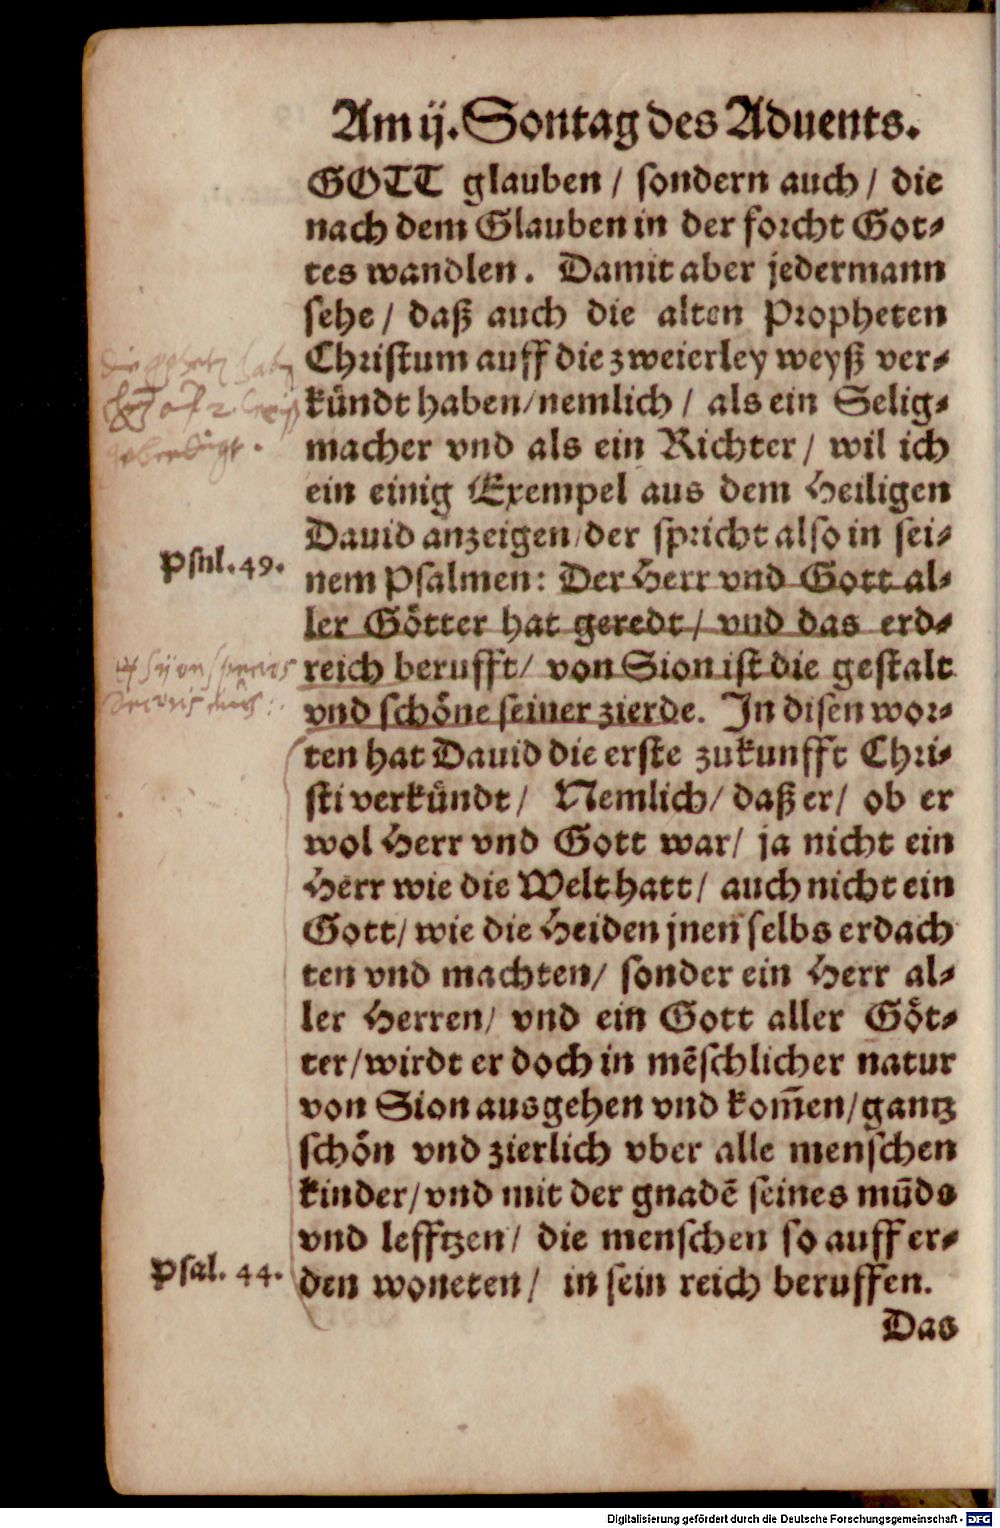 Am ij. Sontag des Aduents.
GOTT glauben / sondern auch / die
nach dem Glauben in der forcht Got-
tes wandlen. Damit aber jedermann
sehe / daß auch die alten Propheten
Christum auff die zweierley weyß ver-
kündt haben / nemlich / als ein Selig-
macher vnd als ein Richter / wil ich
ein einig Exempel aus dem Heiligen
Dauid anzeigen / der spricht also in sei-
Psal. 49.
nem Psalmen: Der Herr vnd Gott al-
ler Götter hat geredt / vnd das erd-
reich berufft / von Sion ist die gestalt
vnd schöne seiner zierde. In disen wor-
ten hat Dauid die erste zukunfft Chri-
sti verkündt / Nemlich / daß er / ob er
wol Herr vnd Gott war / ja nicht ein
Herr wie die Welt hatt / auch nicht ein
Gott / wie die Heiden jnen selbs erdach
ten vnd machten / sonder ein Herr al-
ler Herren / vnd ein Gott aller Göt-
ter / wirdt er doch in mẽschlicher natur
von Sion ausgehen vnd kom̃en / gantz
schön vnd zierlich vber alle menschen
kinder / vnd mit der gnadẽ seines mũds
vnd lefftzen / die menschen so auff er-
Psal. 44.
den woneten / in sein reich beruffen.
Das
Digitalisierung gefördert durch die Deutsche Forschungsgemeinschaft - DFG